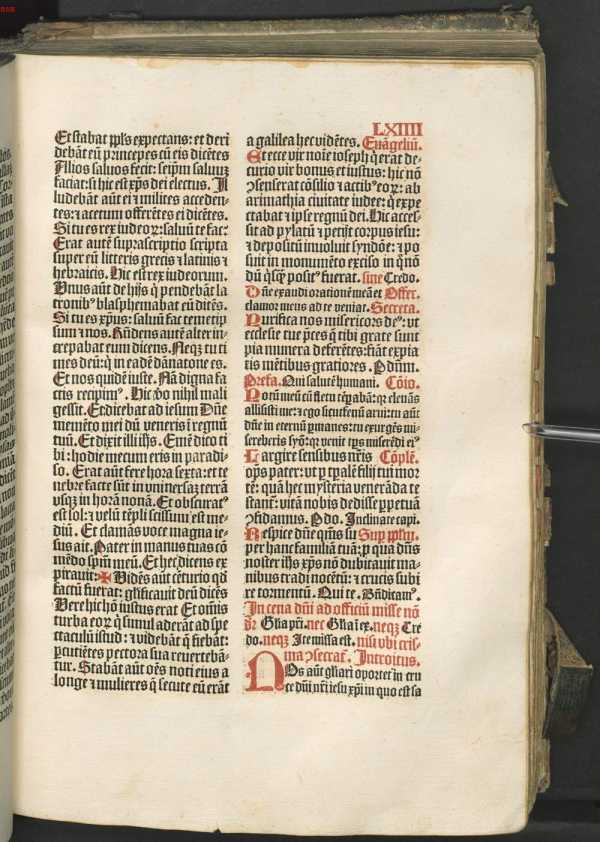 LXIIII
Et stabat ppl's expectans: et deri
debāt eū principes cū eis dicētes
Alios saluos fecit: seip̄m saluuꝫ
faciat: si hic est xp̄s dei electus. Il
ludebāt aūt ei ⁊ milites acceden-
tes: ⁊ acetum offerētes ei dicētes.
Si tu es rex iudeoꝝ: saluū te fac.
Erat autē suprascriptio scripta
super eū litteris grecis ⁊ latinis ⁊
hebraicis. Hic est rex iudeorum.
Unus aūt de hijs q̇ pendebāt la
tronibꝰ blasphemabat eū dicēs.
Si tu es xp̄us: saluū fac temetip
sum ⁊ nos. Rn̄dens autē alter in-
crepabat eum dicens. Neqꝫ tu ti
mes deū: q̇ in eadē dānatone es.
Et nos quidē iuste. Nā digna fa
ctis recipimꝰ. Hic v̄o nihil mali
gessit. Et dicebat ad iesum Dn̄e
memēto mei dū veneris ī regnū
tuū. Et dixit illi ih̄s. Amē dico ti
bi: hodie mecum eris in paradi-
so. Erat aūt fere hora sexta: et te
nebre facte sūt in vniuersaꝫ terrā
vsqꝫ in horā nonā. Et obscuratꝰ
est sol: ⁊ velū tēpli scissum est me-
diū. Et clamās voce magna ie-
sus ait. Pater in manus tuas cō
mēdo spm̄ meū. Et hec dicens ex
pirauit: ✠ Vidēs aūt cēturio qd̄
factū fuerat: glificauit deū dicēs
Vere hic hō iustus erat Et om̄is
turba eoꝝ q̇ simul aderāt ad spe
ctaculū istud: ⁊ videbāt q̄ fiebāt:
ꝑcutiētes pectora sua reuertebā-
tur. Stabāt aūt oēs noti eius a
longe ⁊ mulieres q̄ secute eū erāt
a galilea hec vidētes. Euāgeliū.
Et ecce vir noīe ioseph q̇ erat de-
curio vir bonus et iustus: hic nō
ꝯsenserat cōsilio ⁊ actibꝰ eoꝝ: ab
arimathia ciuitate iudee: q̇ expe
ctabat ⁊ ipse regnū dei. Hic acces-
sit ad pylatū ⁊ petijt corpus iesu:
⁊ depositū inuoluit syndōe: ⁊ po
suit in monumēto exciso in q̇ nō
dū q̇sqꝫ positꝰ fuerat. sine Credo.
Dn̄e exaudi orationē meā et Offer.
clamor meus ad te veniat. Secreta.
Purifica nos misericors deꝰ: vt
ecclesie tue p̄ces q̄ tibi grate sunt
pia munera deferētes: fiāt expia
tis mētibus gratiores. Ꝑ dn̄m.
Prefa. Qui salutē humani. Cōio.
Potū meū cū fletu tēpabā: qꝛ eleuās
allisisti me: ⁊ ego sicut fenū arui: tu aūt
dn̄e in eternū ꝑmanes: tu exurgēs mi-
sereberis syō: qꝛ venit tp̄s miserēdi eiꝰ
Largire sensibus nr̄is Cōplē.
oīps pater: vt ꝑ tp̄alē filij tui mor
tē: quā hec mysteria venerāda te
stant: vitā nobis dedisse ꝑpetuā
ꝯfidamus. Ꝑ dn̄. Inclinate capi.
Respice dn̄e qs̄ su Sup pplm̄.
per hanc familiā tuā: ꝓ qua dn̄s
noster ih̄s xp̄s nō dubitauit ma-
nibus tradi nocētū: ⁊ crucis subi
re tormentū. Qui te. Bn̄dicamꝰ.
In cena dn̄i ad officiū misse nō
dr̄ Glia pr̄i. nec Glia ex. neqꝫ Cre
do. neqꝫ Ite missa est. nisi vbi cris-
ma ꝯsecrat̄. Introitus.
Nos aūt gl̄iari oportet in cru
ce dn̄i nr̄i iesu xp̄i in quo est sa